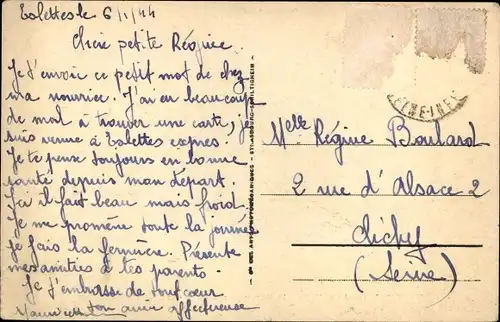 Tolettes le 6/1/44
Chère petite Régine
Je t'envoie ce petit mot de chez
ma nourrice. J'ai eu beaucoup
de mal à trouver une carte, je
suis venue à Tolettes exprès.
Je te pense toujours en bonne
santé depuis mon départ.
Ici il fait beau mais froid.
Je me promène toute la journée
je fais la fermière. Présente
mes amitiés à tes parents.
Je t'embrasse de tout cœur
ton amie affectueuse
Melle Régine Boulard
2 rue d'Alsace 2
Clichy
(Seine)